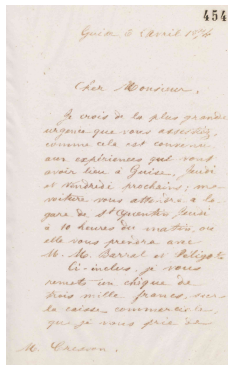 454
Guise, 6 Avril 1874
Cher Monsieur,
Je crois de la plus grande
urgence que vous assistiez,
comme cela est convenu
aux expériences qui vont
avoir lieu à Guise, Jeudi
et vendredi prochains; ma
voiture vous attendra à la
gare de St Quentin Jeudi
à 10 heures du matin, où
elle vous prendra avec
M. M. Barral et
Ci-inclus, je vous
remets un chèque de
trois mille francs, sur
la caisse commerciale,
que je vous prie de
M. Cresson.